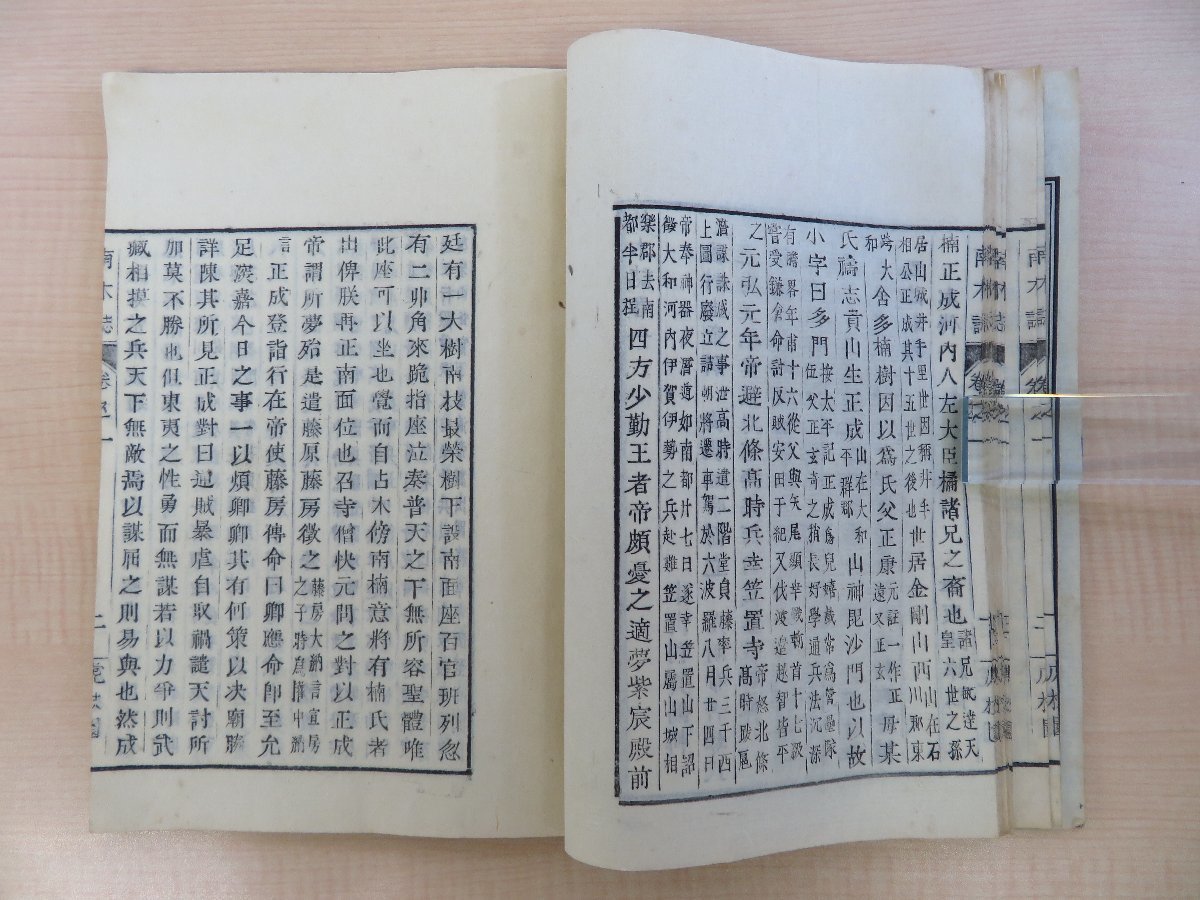 楠正成河内人左大臣橘諸兄之裔也諸兄敏達天皇六世之孫
居山城井手里世因稱井手相公正成其十五世之後也世居金剛山西山在石川那東
跨大和舍多楠樹因以爲氏父正康元註一作正遠又正玄母某
氏禱志貢山生正成山在大和平群郡山神毘沙門也以故
小字曰多門按太平記正成爲兒嬉戲常爲營壘隊伍父正玄奇之稍長好學通兵法沉深
有膽畧年甫十六從父與矢尾顯幸戰斬首十七級嘗受鎌倉命討反賊安田于紀又伐渡邊越智皆平
之元弘元年帝避北條高時兵幸笠置寺帝怒北條高時跋扈
濳謀誅滅之事泄高時遣二階堂貞藤率兵三千西上圖行廢立詰朝將遷車駕於六波羅八月廿四日
帝奉神器夜潛遁如南都廿七日遂幸笠置山下詔發大和河内伊賀伊勢之兵赴難笠置山屬山城相
樂郡去南都半日程四方少勤王者帝頗憂之適夢紫宸殿前
廷有一大樹南枝最榮樹下設南面座百官班列忽
有二丱角來跪指座泣奏普天之下無所容聖體唯
此座可以坐也覺而自占木傍南楠意將有楠氏者
出俾朕再正南面位也召寺僧快元問之對以正成
帝謂所夢殆是遣藤原藤房徵之藤房大納言宣房之子時爲權中納
言正成登詣行在帝使藤房傳命曰卿應命即至允
足嘉今日之事一以煩卿卿其有何策以决廟勝
詳陳其所見正成對曰逆賊暴虐自取禍譴天討所
加莫不勝也但東夷之性勇而無謀若以力爭則武
藏相摸之兵天下無敵焉以謀屈之則易與也然成
南木誌 卷之一 二
南木誌 卷之一